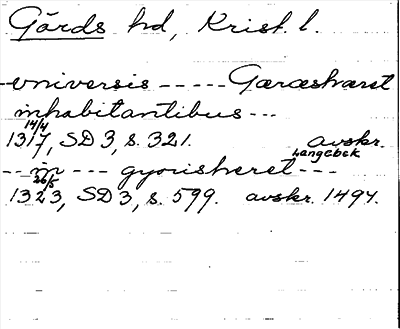 Gärds hd, Krist. l.
--universis ----- Gæræshæret
inhabitantibus ---
14/4
1317, SD 3, s. 321. avskr.
Langebek
--- in --- gyorishæret ---
26/5
1323, SD 3, s. 599. avskr. 1494.